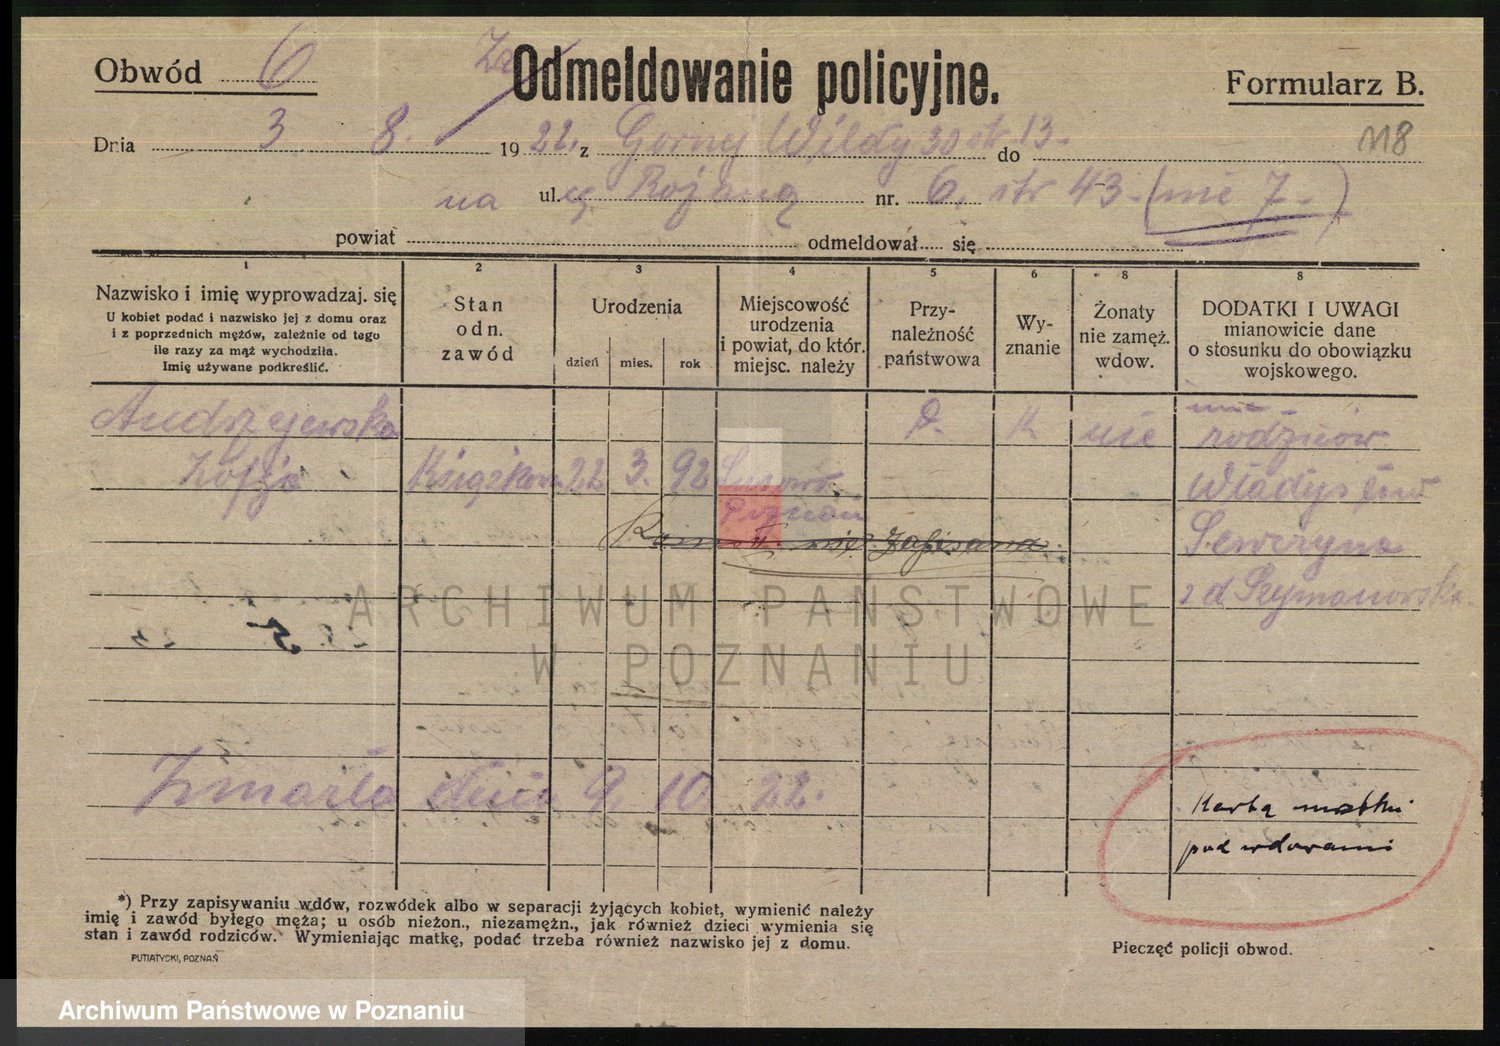 Obwód 6
Za
Odmeldowanie policyjne.
Formularz B.
Dnia 3. 8. 1922. z Gornej Wildy 30 str. 13. do
118
na ul. Różaną nr. 6, str 43 - (nie 7 - )
powiat odmeldował się
1 2 3 4 5 6 8 8
Nazwisko i imię wyprowadzaj. się
U kobiet podać i nazwisko jej z domu oraz
i z poprzednich mężów, zależnie od tego
ile razy za mąż wychodziła.
Imię używane podkreślić.
Stan
odn.
zawód
Urodzenia
dzień mies. rok
Miejscowość
urodzenia
i powiat, do któr.
miejsc. należy
Przy-
należność
państwowa
Wy-
znanie
Żonaty
nie zamęż.
wdow.
DODATKI I UWAGI
mianowicie dane
o stosunku do obowiązku
wojskowego.
Andrzejewska P. K nie rodziców
Zofja 22 3. 92 Władysław
Poznań
zapisana Seweryna
z d Szymanowska
Zmarła dnia 9. 10. 22.
Karta matki
pod wdowami
*) Przy zapisywaniu wdów, rozwódek albo w separacji żyjących kobiet, wymienić należy
imię i zawód byłego męża; u osób nieżon., niezamężn., jak również dzieci wymienia się
stan i zawód rodziców. Wymieniając matkę, podać trzeba również nazwisko jej z domu.
PUTIATYCKI, POZNAŃ
Pieczęć policji obwod.
ARCHIWUM PAŃSTWOWE
W POZNANIU
Archiwum Państwowe w Poznaniu